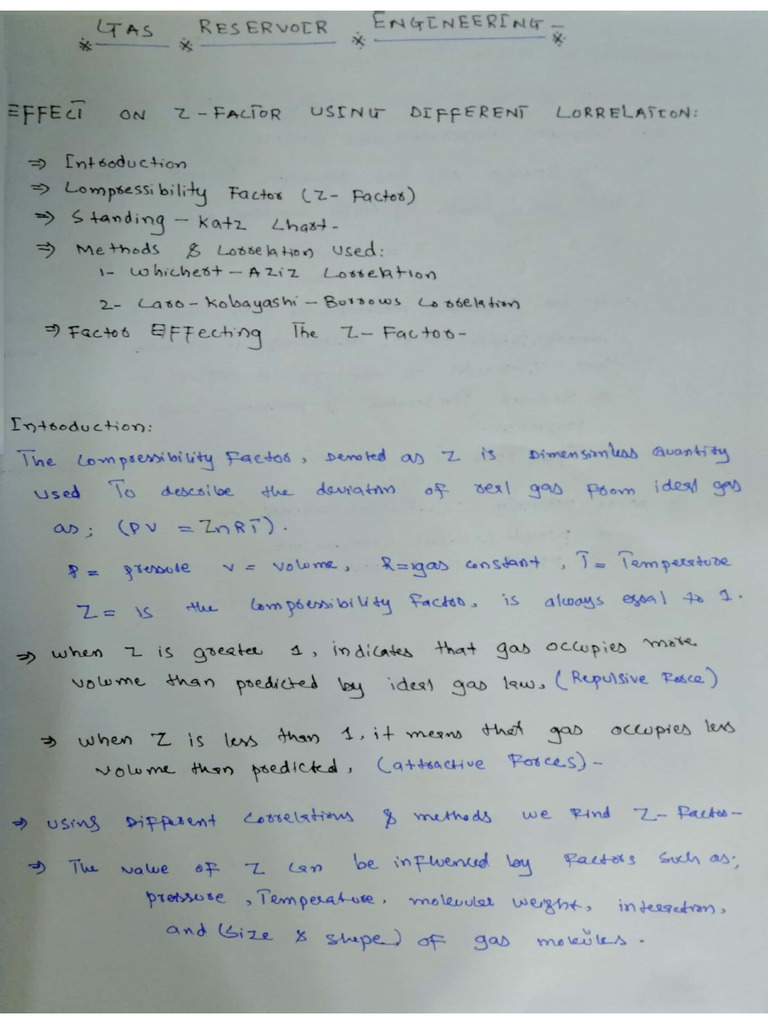 * GAS * RESERVOIR * ENGINEERING - *
EFFECT ON Z-FACTOR USING DIFFERENT CORRELATION:
⇒ Introduction
⇒ Compressibility Factor (Z- Factor)
⇒ Standing - Katz Chart-
⇒ Methods & Correlation Used:
1- Whichert - Aziz Correlation
2- Caro - Kobayashi - Burrows Correlation
⇒ Factor Effecting The Z- Factor-
Introduction:
The Compressibility Factor, Denoted as Z is Dimensionless Quantity
used To describe the deviation of real gas from ideal gas
as; (PV = ZnRT).
P = pressure V = volume, R=gas constant, T= Temperature
Z = is the Compressibility Factor, is always equal to 1.
⇒ when Z is greater 1, indicates that gas occupies more
volume than predicted by ideal gas law, (Repulsive Force)
⇒ when Z is less than 1, it means that gas occupies less
volume than predicted, (attractive Forces) -
⇒ using Different Correlations & methods we Find Z- Factor-
⇒ The value of Z can be influenced by Factors Such as;
pressure, Temperature, molecular weight, interaction,
and (Size & shape) of gas molecules.